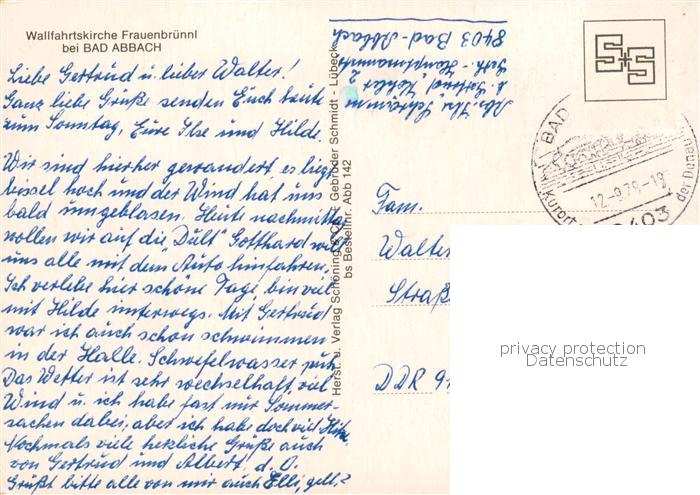 Wallfahrtskirche Frauenbrünnl
bei BAD ABBACH
Liebe Gertrud u. lieber Walter!
Ganz liebe Grüße senden Euch heute
zum Sonntag, Eure Ilse und Hilde.
Wir sind hierher gewandert, es liegt
bissel hoch und der Wind hat uns
bald umgeblasen. Heute nachmittag
wollen wir auf die "Dult" Gotthard will
uns alle mit dem Auto hinfahren.
Ich verlebe hier schöne Tage, bin viel
mit Hilde unterwegs. Mit Gertrud
war ich auch schon schwimmen
in der Halle. Schwefelwasser puh.
Das Wetter ist sehr wechselhaft, viel
Wind u. ich habe fast nur Sommer-
sachen dabei, aber ich habe doch viel Hitze.
Nochmals viele herzliche Grüße auch
von Gertrud und Albert d. O.
Grüßt bitte alle von mir auch Elli, gell?
Herst. u. Verlag Schöning & Co. + Gebrüder Schmidt - Lübeck
bs Bestellnr. Abb 142
Abs. Ilse
b. Gertrud Kehler
Gerh.-Hauptmannstr. 2
8403 Bad-Abbach
S+S
BAD
12.-9.78-18
Kurort
der Donau
8403
Fam.
Walter
Straß
DDR 9
privacy protection
Datenschutz